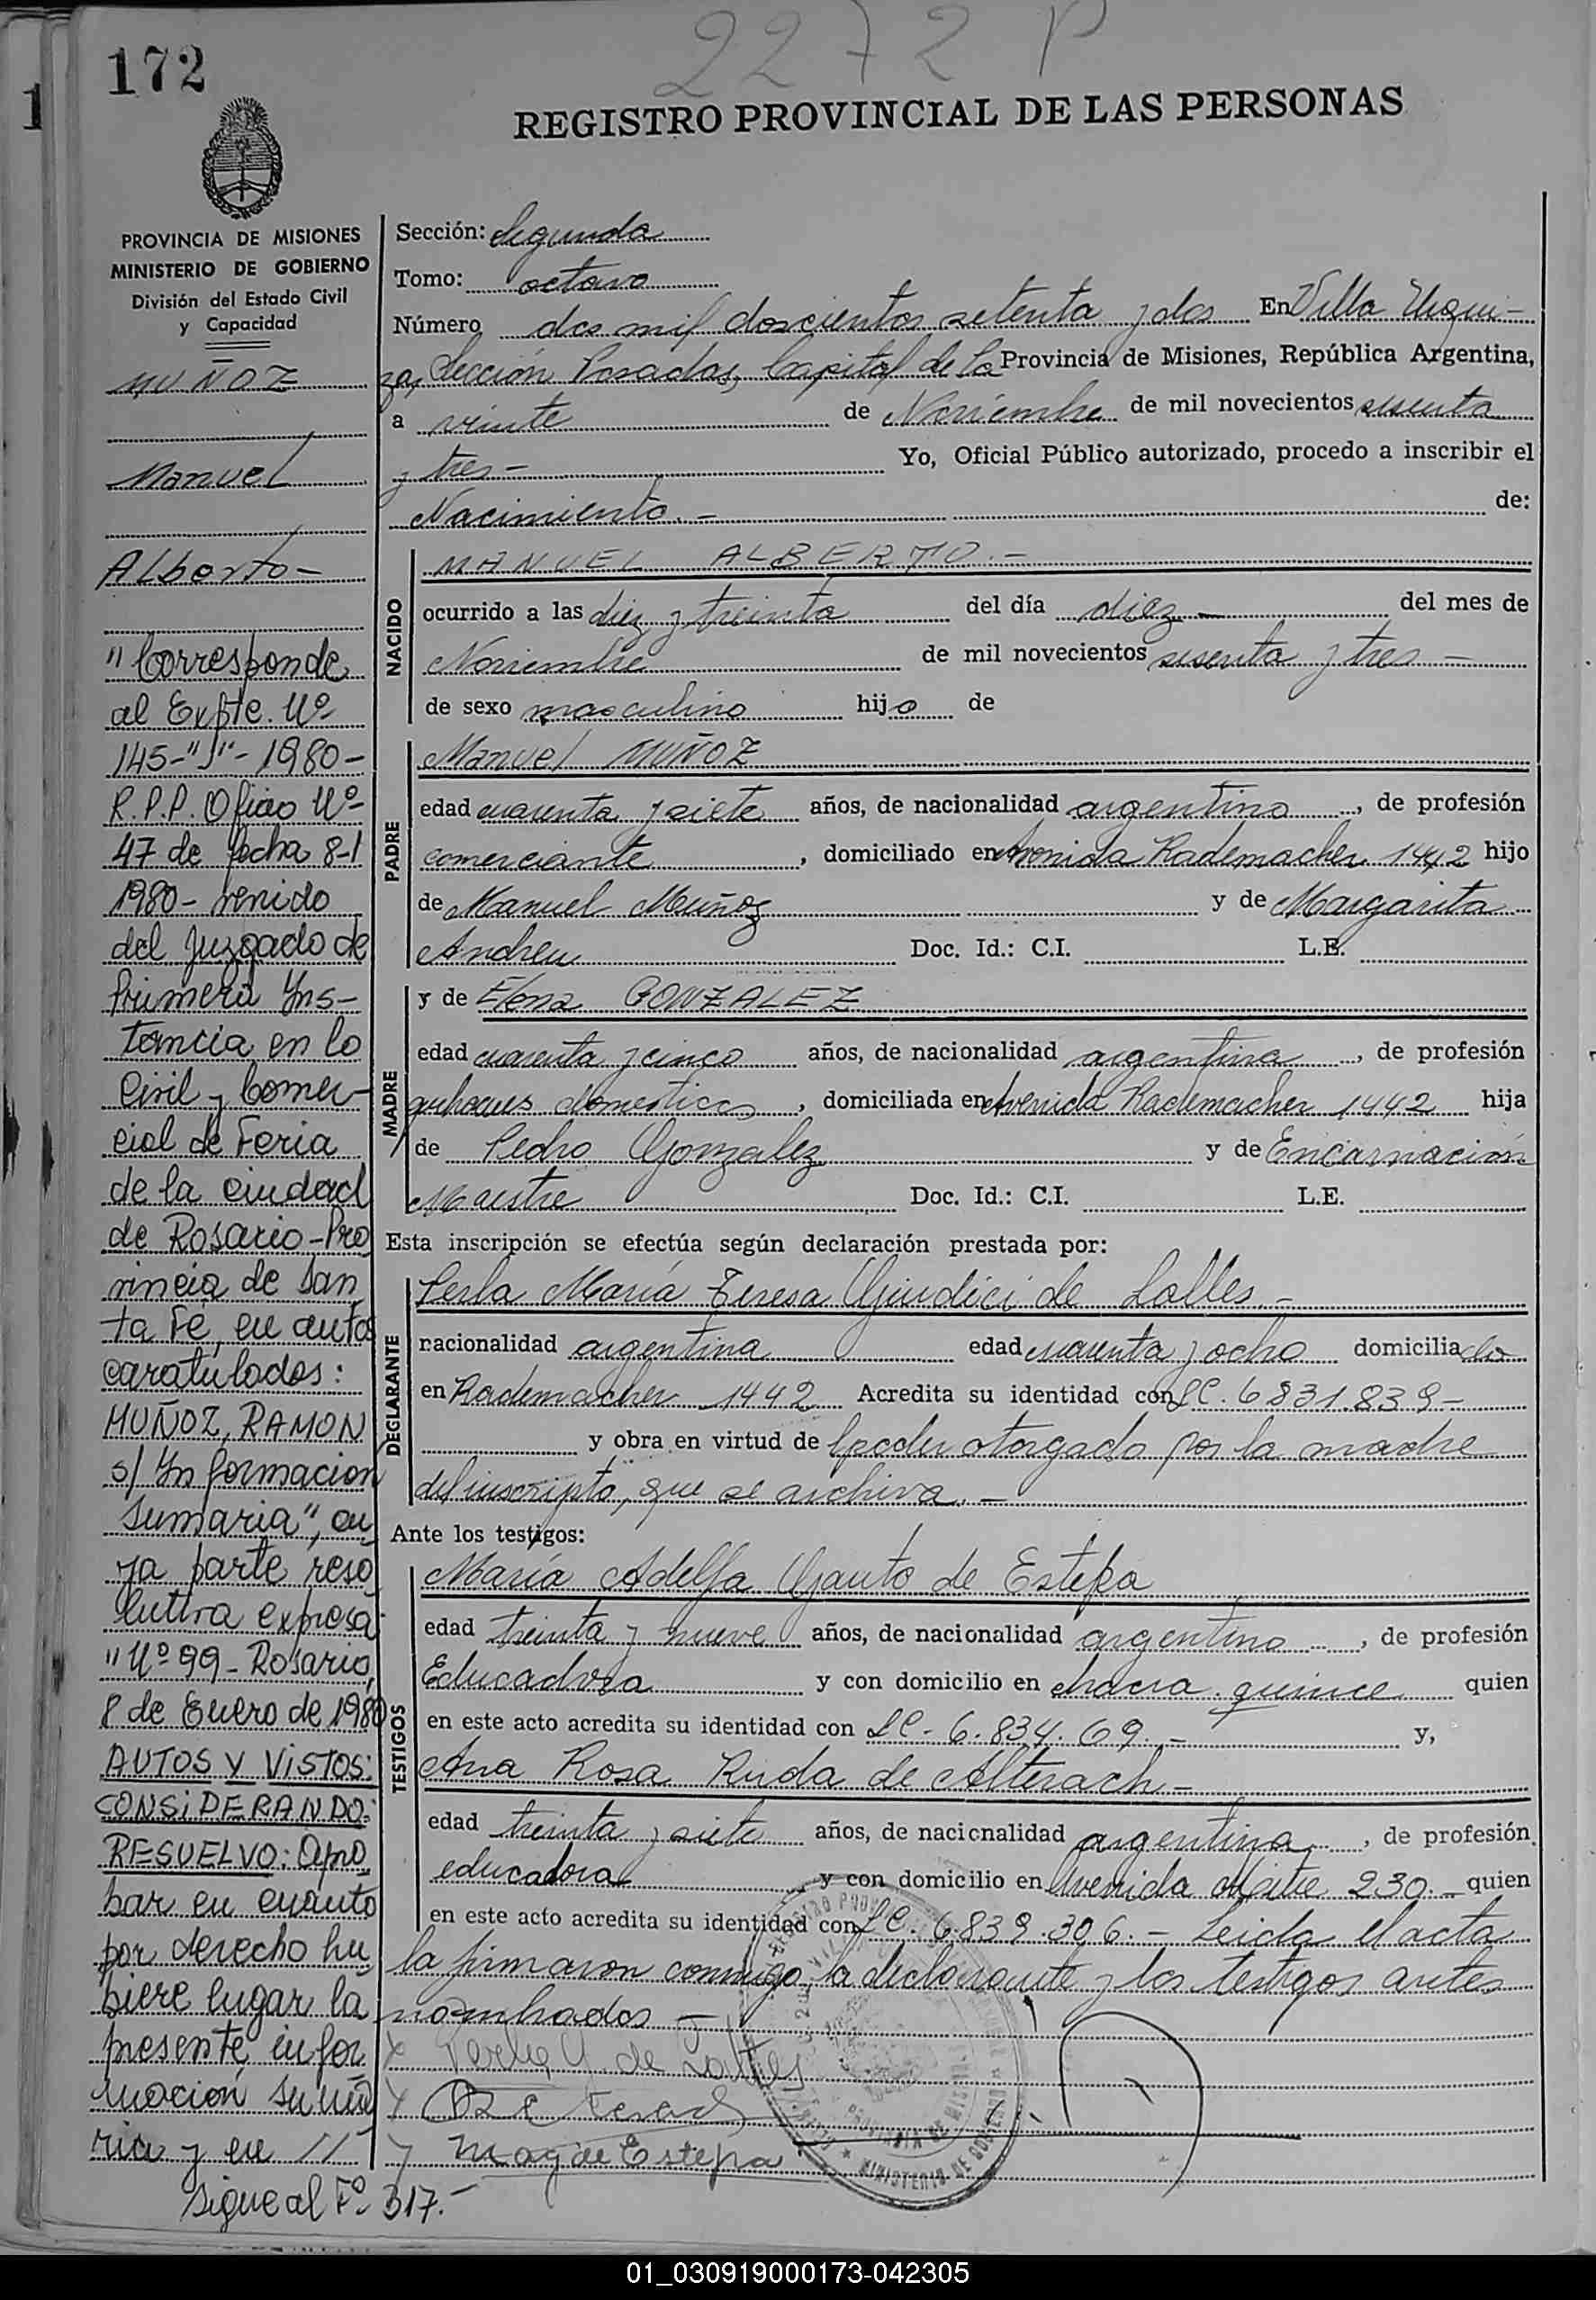 2272 P
172
REGISTRO PROVINCIAL DE LAS PERSONAS
PROVINCIA DE MISIONES
MINISTERIO DE GOBIERNO
División del Estado Civil
y Capacidad
MUÑOZ
Manuel
Alberto-
"Corresponde
al Expte. Nº
145-"S"- 1980-
R.P.P. Oficio Nº
47 de fecha 8-1
1980- venido
del Juzgado de
Primera Yns-
tancia en lo
Civil y Comer-
cial de Feria
de la ciudad
de Rosario-Pro
vincia de San
ta Fé, en autos
caratulados:
MUÑOZ, RAMON
s/ Ynformacion
sumaria", cu
ya parte reso
lutiva expresa:
"Nº 99- Rosario,
8 de Enero de 1980
AUTOS Y VISTOS:
CONSIDERANDO:
RESUELVO: Apro
bar en cuanto
por derecho hu
biere lugar la
presente infor
macion suma
ria y en //
Sigue al Fº 317.-
Sección: Segunda
Tomo: octavo
Número dos mil doscientos setenta y dos En Villa Urqui-
za, Sección Posadas, Capital de la Provincia de Misiones, República Argentina,
a veinte de Noviembre de mil novecientos sesenta
y tres- Yo, Oficial Público autorizado, procedo a inscribir el
Nacimiento.- de:
NACIDO
MANUEL ALBERTO.-
ocurrido a las diez y treinta del día diez- del mes de
Noviembre de mil novecientos sesenta y tres-
de sexo masculino hijo de
PADRE
Manuel MUÑOZ
edad cuarenta y siete años, de nacionalidad argentino, de profesión
comerciante, domiciliado en Avenida Rademacher 1442 hijo
de Manuel Muñoz y de Margarita
Andreu Doc. Id.: C.I. L.E.
MADRE
y de Elena GONZALEZ
edad cuarenta y cinco años, de nacionalidad argentina, de profesión
quehaceres domesticos, domiciliada en Avenida Rademacher 1442 hija
de Pedro Gonzalez y de Encarnación
Maestre Doc. Id.: C.I. L.E.
Esta inscripción se efectúa según declaración prestada por:
DECLARANTE
Perla María Teresa Giudici de Lalles.-
nacionalidad argentina edad cuarenta y ocho domiciliada
en Rademacher 1442 Acredita su identidad con LC. 6831.839-
y obra en virtud de poder otorgado por la madre
del inscripto, que se archiva.-
Ante los testigos:
TESTIGOS
María Adelfa Gauto de Estepa
edad treinta y nueve años, de nacionalidad argentina, de profesión
Educadora y con domicilio en chacra quince quien
en este acto acredita su identidad con LC. 6.834.69.- y,
Ana Rosa Ruda de Alterach-
edad treinta y siete años, de nacionalidad argentina, de profesión
educadora y con domicilio en Avenida Mitre 230.- quien
en este acto acredita su identidad con LC. 6.839.306.- Leida el acta
la firmaron conmigo la declarante y los testigos antes
nombrados-
Perla G de Lalles
M a g de Estepa
PROVINCIA DE MISIONES
MINISTERIO DE GOBIERNO
01_030919000173-042305